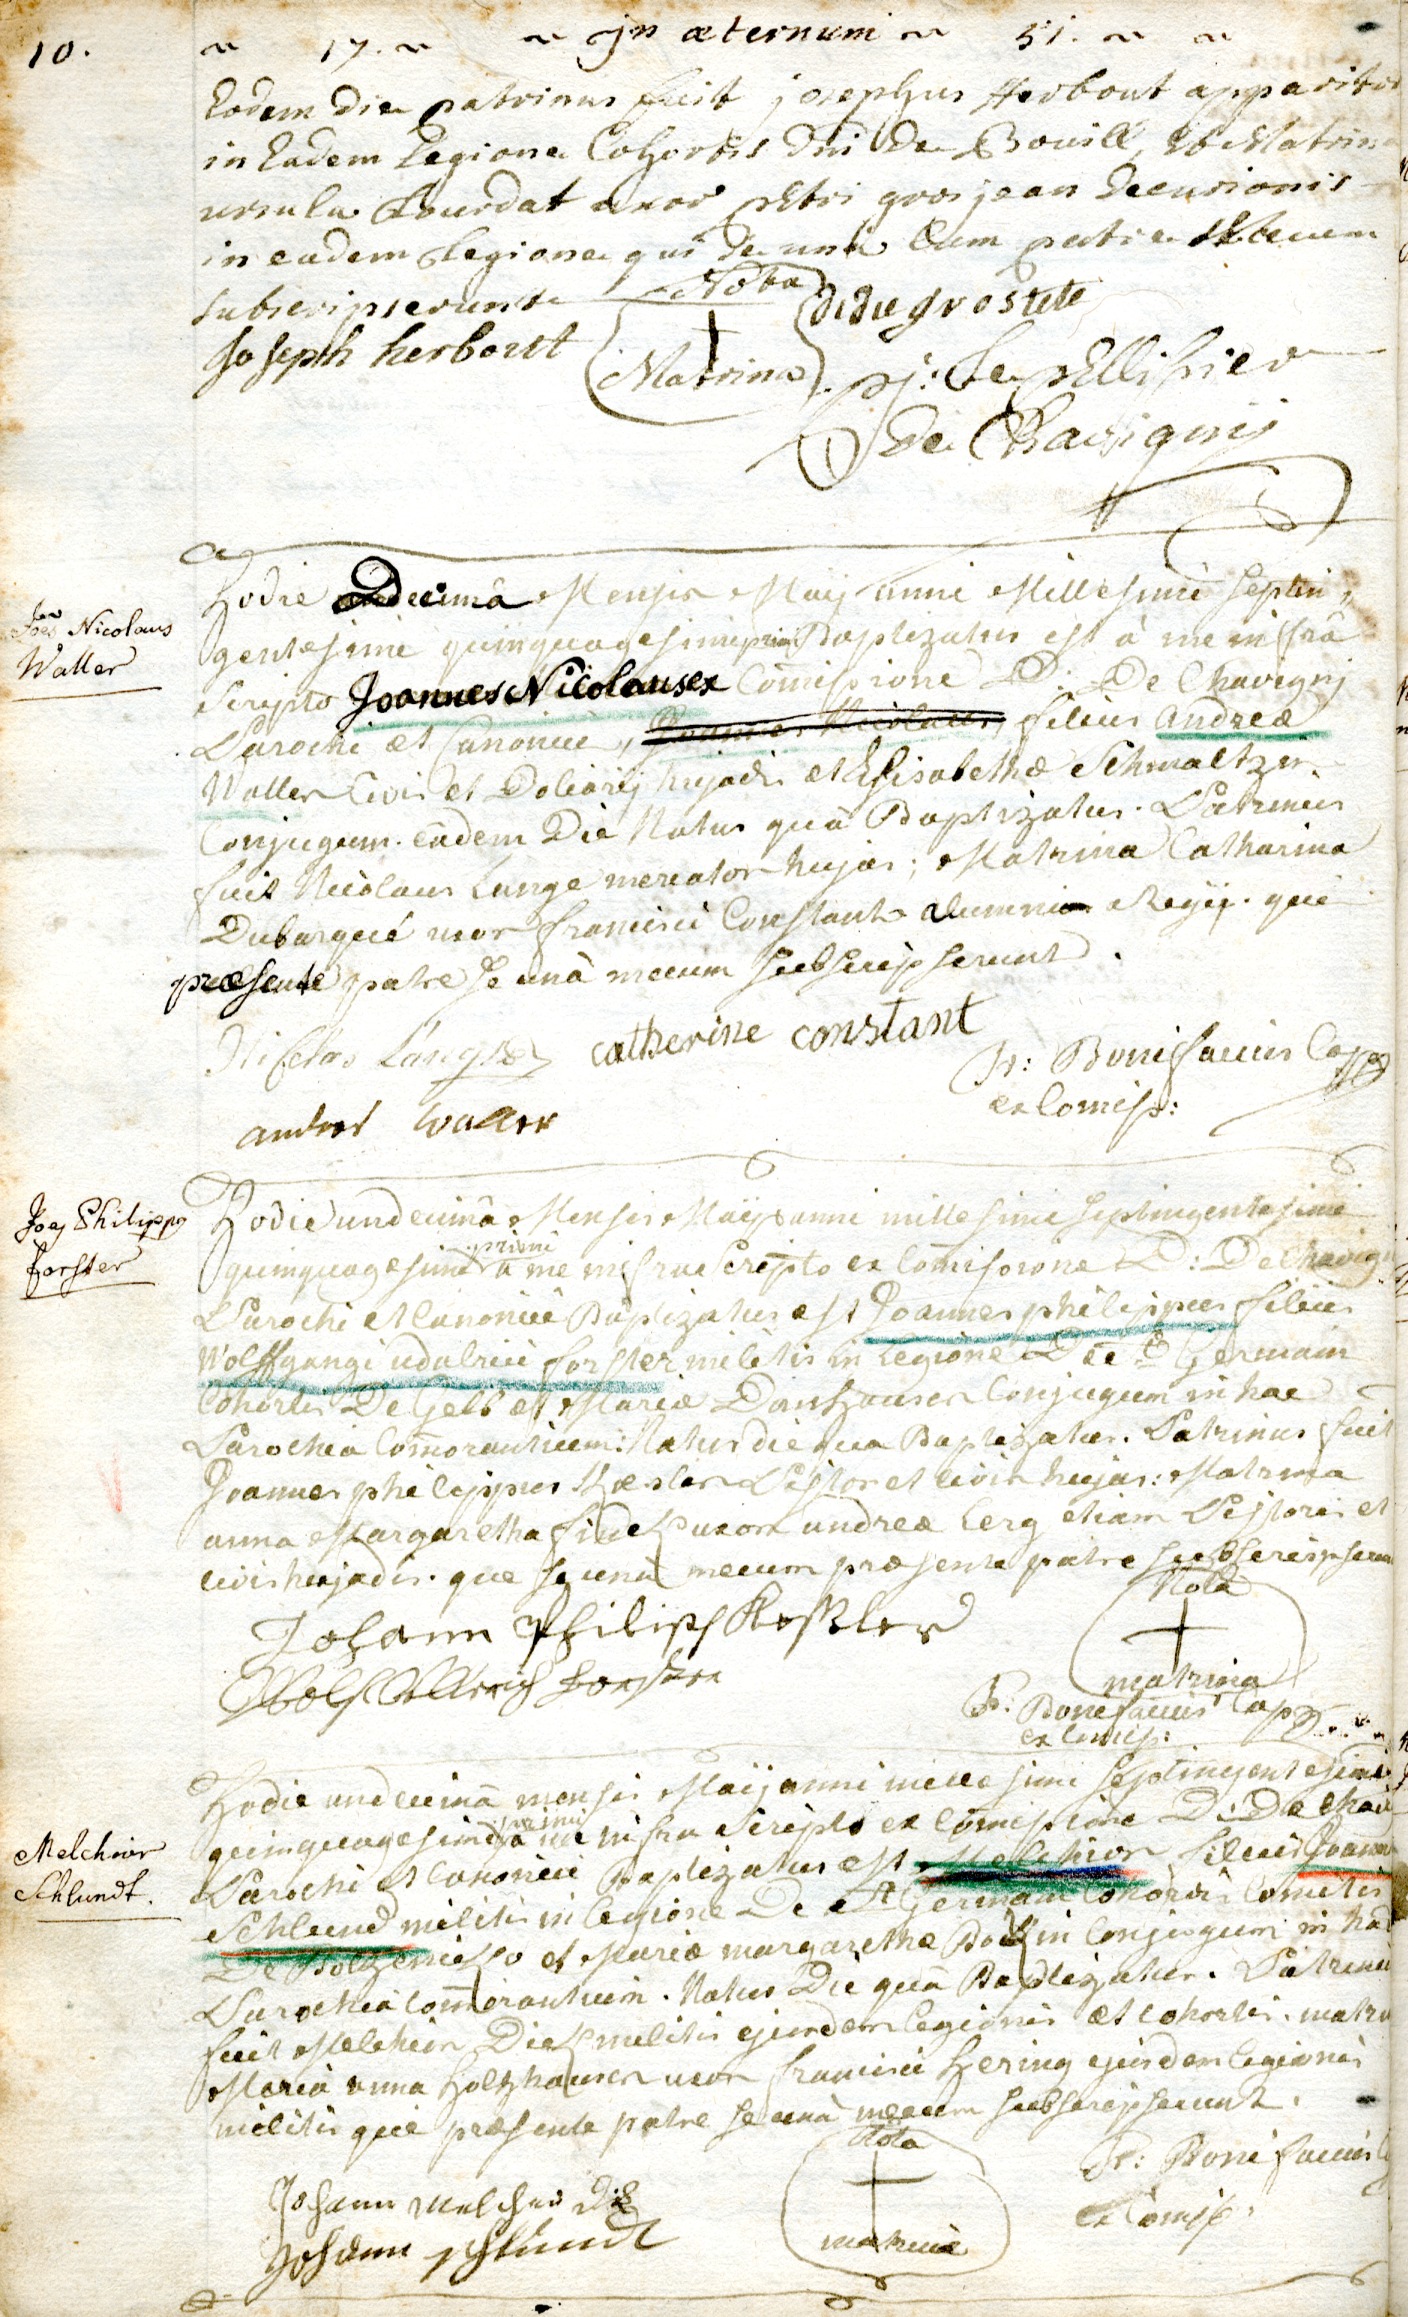 10.
17. in æternum 51.
Eodem die patrinus fuit josephus Herbout apparitor
in eadem Legione Cohortis Dni De Bouill, et Matrina
ursula Bourdat uxor petri grosjean Decurionis
in eadem Legione qui de una Cum patre Mecum
subscripserunt
Nota
Matrina
Joseph herbout
p: j: Le pellissier
De Chavignij
Joēs Nicolaus
Waller
Hodie Decimâ Mensis Maij anni Millesimi septin„
gentesimi quinquagesimi primi Baptizatus est à me infrà
scripto Joannes Nicolaus ex Com̄issione D: De Chavignij
Parochi et Canonici, Joannes Nicolaus, filius andreæ
Waller Civis et Doliarij hujadis et Elisabethæ Schmaltzer
Conjugum. eâdem Die Natus quâ Baptizatus. Patrinus
fuit Nicolaus Lange mercator hujas; Matrina Catharina
Dubarqué uxor francisci Constant alumni Regij. qui
præsente patre se unà mecum subscripserunt.
Nicolas Lange catherine constant
Fr: Bonifacius Capp
ex Comiss:
andres waller
Joēs Philippg
Forster
Hodie undecimâ Mensis Maij anni millesimi septingentesimi
quinquagesimi primi à me infra scripto ex Com̄issione D: De Chavigni
Parochi et Canonici Baptizatus est Joannes philippus filius
Wolffgangi udalrici forster militis in Legione De St Germain
Cohortis De Gelb et Mariæ Danhauser Conjugum in hac
Parochia Com̄orantium: Natus die qua Baptizatus. Patrinus fuit
Joannes philippus Kesler Pistor et civis hujas: Matrina
anna Margaretha uxor andreæ Lerg etiam Pistoris et
civis hujadis. que se unà mecum præsente patre subscripserunt
Nota
matrina
Johann Philipp Keßler
Wolf Ullrich Forster
Fr: Bonifacius Capp
ex Comiss:
Melchior
Schlundt.
Hodie undecimâ mensis Maij anni millesimi septingentesimi
quinquagesimi primi à me infra scripto ex Comissione D: De Chavi
Parochi et Canonici Baptizatus est Melchior filius Joannis
Schlund militis in Legione De St Germain Cohortis Comitis
De et Mariæ margarethæ Conjugum in hac
Parochia Com̄orantium. Natus Die quâ Baptizatus. Patrinus
fuit Melchior militis ejusdem Legionis et Cohortis. matrina
Maria anna Holtzhauser uxor francisci Hering ejusdem Legionis
militis qui præsente patre se unà mecum subscripserunt.
Nota
matrina
Fr: Bonifacius
ex Comiss:
Johann Melcher
Johann Schlundt